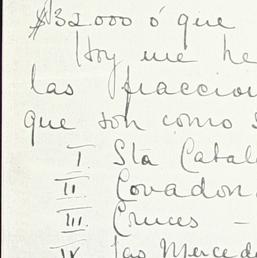 $32.000 ó que
Hoy me he
las fraccio
que son como
I Sta Catal
II Covadon
III Cruces -
IV Las Merced